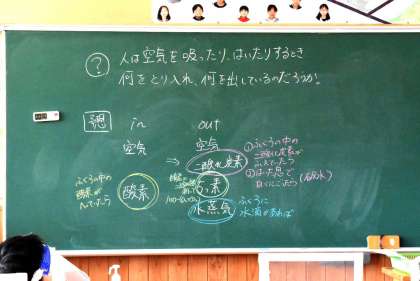 ? 人は空気を吸ったり、はいたりするとき
何をとり入れ、何を出しているのだろうか。
予想 in out
空気 空気
⇒ 二酸化炭素
酸素
ちっ素
水蒸気
ふくろの中の
酸素が
へっていたら
①ふくろの中の
二酸化炭素が
ふえていたら
②はいた息で
白くにごったら(石灰水)
ふくろに
水滴があれば